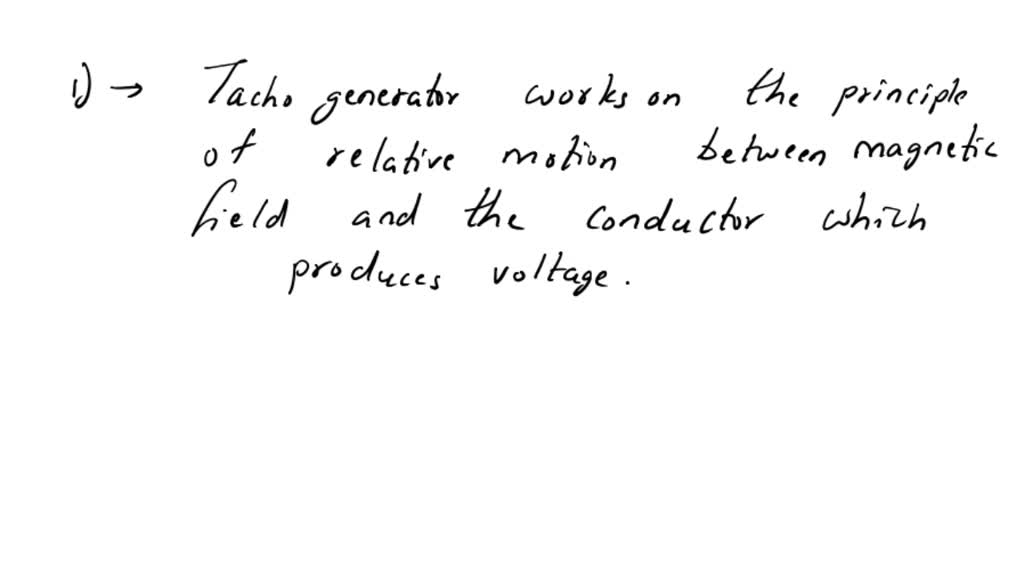 1) → Tacho generator works on the principle
of relative motion between magnetic
field and the conductor which
produces voltage.